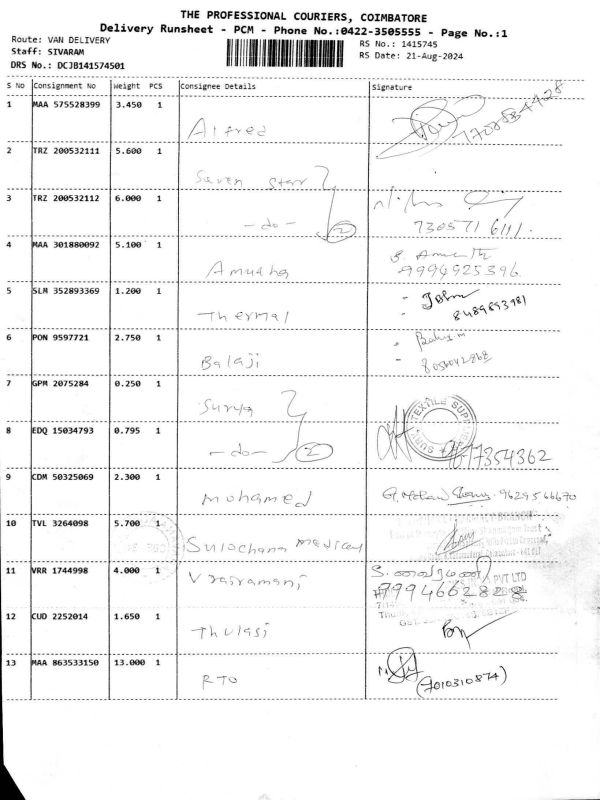 THE PROFESSIONAL COURIERS, COIMBATORE
Delivery Runsheet - PCM - Phone No.:0422-3505555 - Page No.:1
Route: VAN DELIVERY
Staff: SIVARAM
DRS No.: DCJB141574501
RS No.: 1415745
RS Date: 21-Aug-2024
S No Consignment No Weight PCS Consignee Details Signature
1 MAA 575528399 3.450 1 Alfred
2 TRZ 200532111 5.600 1 Seven star
3 TRZ 200532112 6.000 1 -do- 2
7305716111.
4 MAA 301880092 5.100 1 Amudha
9994925396.
5 SLM 352893369 1.200 1 Thermal
- John
8489893981
6 PON 9597721 2.750 1 Balaji
- 8056042868
7 GPM 2075284 0.250 1 Surya
8 EDQ 15034793 0.795 1 -do- 2
9 CDM 50325069 2.300 1 Mohamed 9629566670
10 TVL 3264098 5.700 1 Sulochana Medical
11 VRR 1744998 4.000 1 Vrairamani
PVT LTD
9994662828
12 CUD 2252014 1.650 1 Thulasi
13 MAA 863533150 13.000 1 RTO
(7010310874)